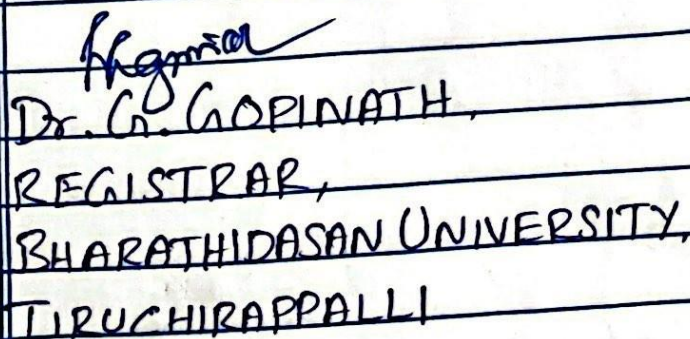 Dr. G. GOPINATH,
REGISTRAR,
BHARATHIDASAN UNIVERSITY,
TIRUCHIRAPPALLI